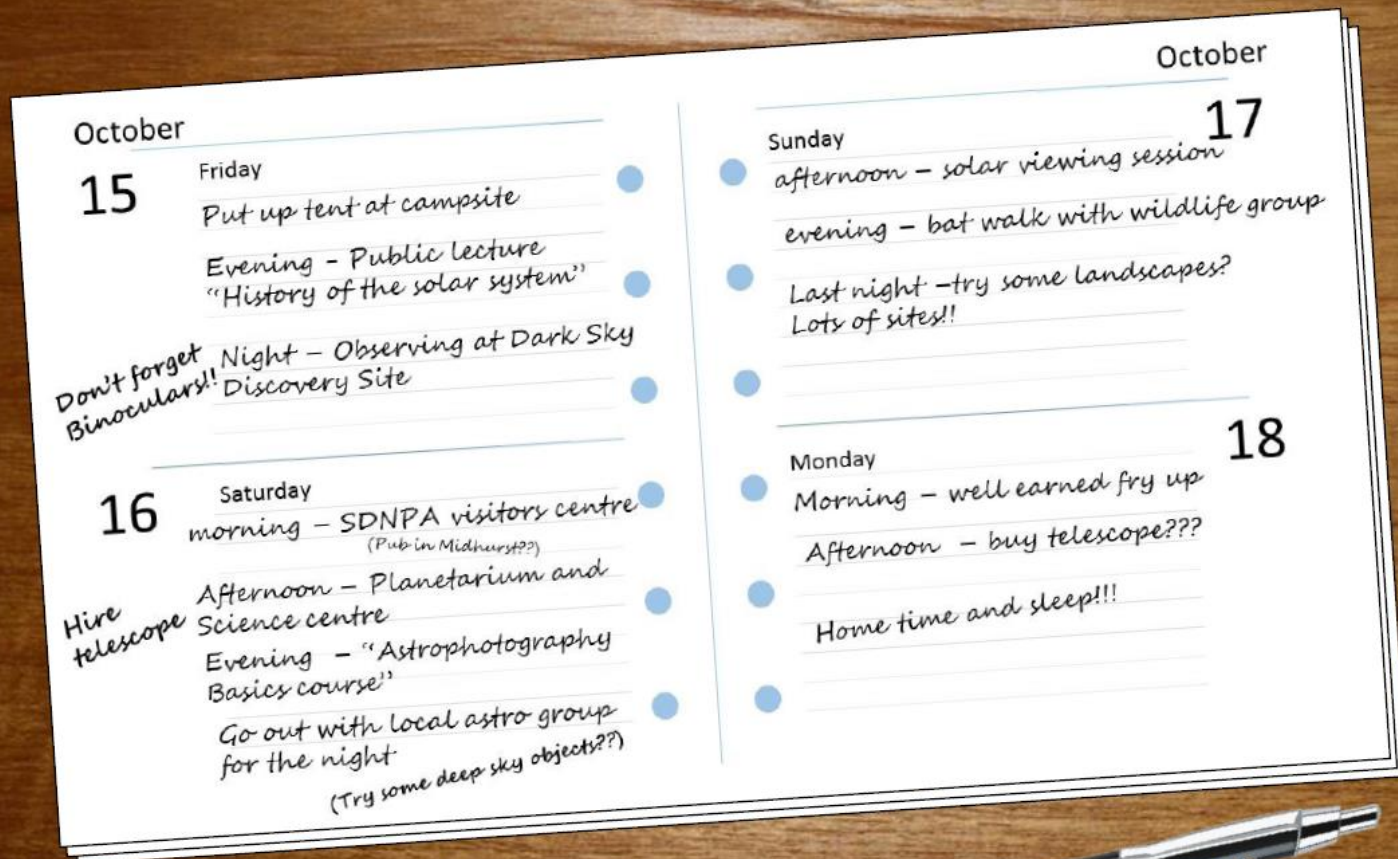 October
15
Friday
Put up tent at campsite
Evening - Public lecture
“History of the solar system”
Don't forget
Binoculars!!
Night – Observing at Dark Sky
Discovery Site
16
Saturday
morning – SDNPA visitors centre
(Pub in Midhurst??)
Afternoon – Planetarium and
Science centre
Hire
telescope
Evening – “Astrophotography
Basics course”
Go out with local astro group
for the night
(Try some deep sky objects??)
October
17
Sunday
afternoon – solar viewing session
evening – bat walk with wildlife group
Last night –try some landscapes?
Lots of sites!!
18
Monday
Morning – well earned fry up
Afternoon – buy telescope???
Home time and sleep!!!